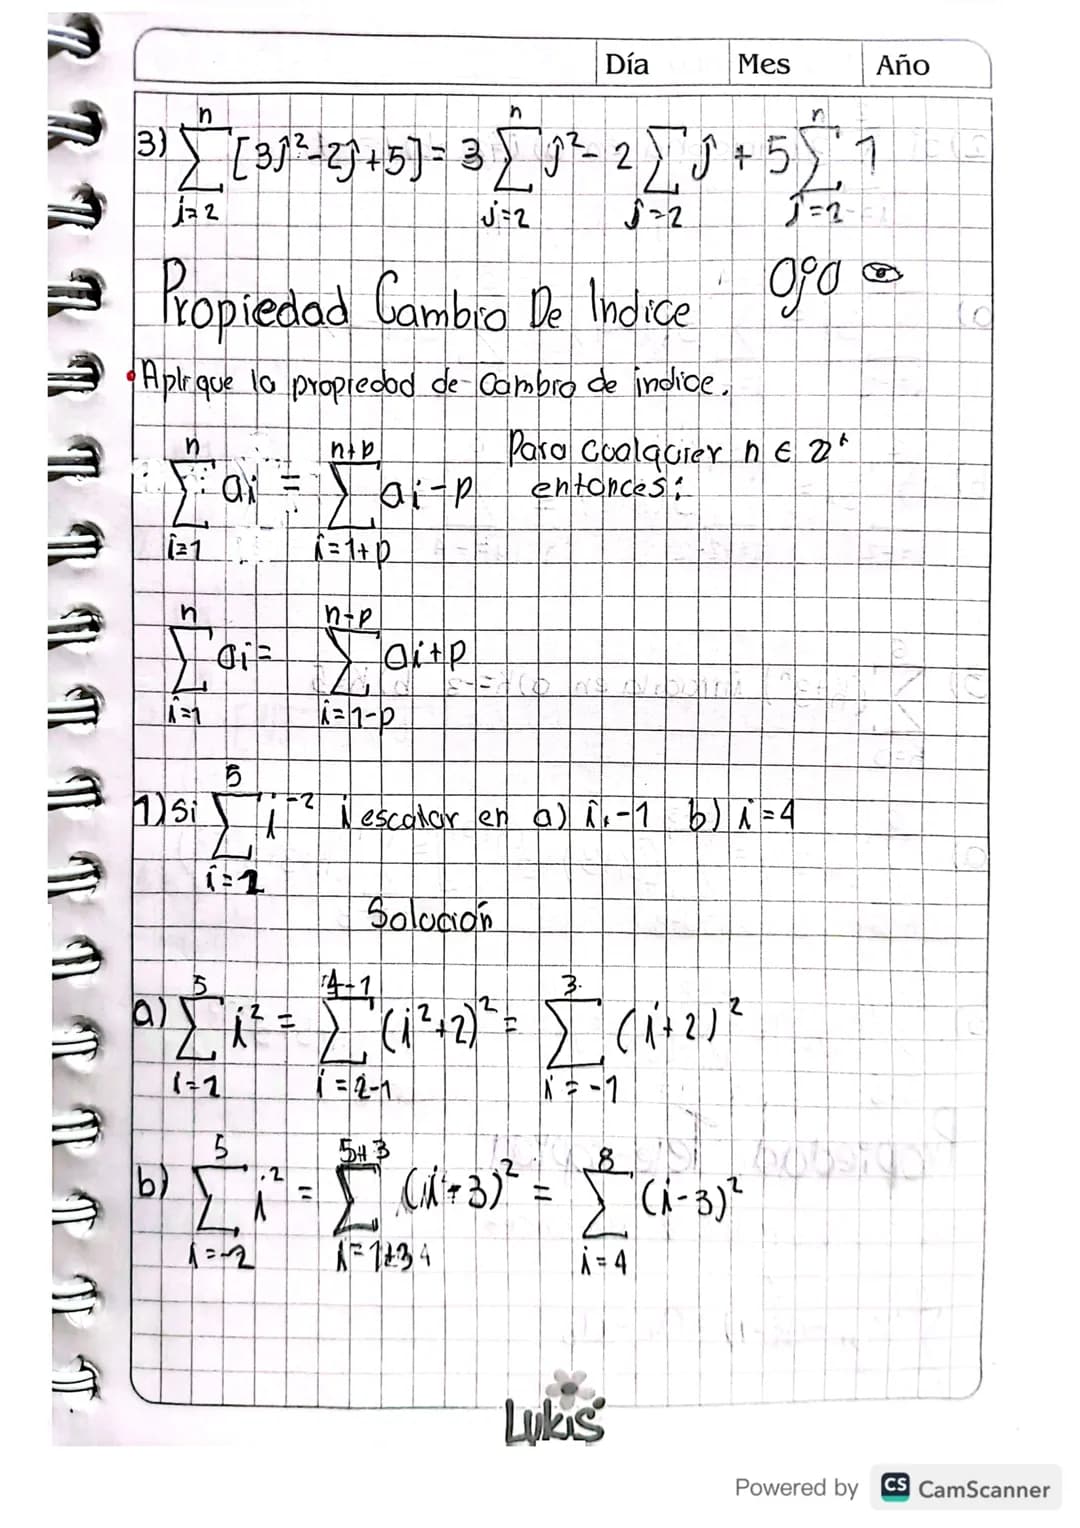 Día Mes Año
3) n ∑ j=2 [3j²-2j+5] = 3 n ∑ j=2 j² - 2 ∑ j=2 j + 5 n ∑ j=2 1
Propiedad Cambio De Indice Ojo
• Aplique la propiedad de Cambio de indice.
n ∑ i=1 ai = n+p ∑ i=1+p ai-p Para Cualquier n ∈ Z⁺
entonces:
n ∑ i=1 ai = n-p ∑ i=1-p ai+p
1) Si 5 ∑ i=1 i² escalar en a) i=-1 b) i=4
Solución
a) 5 ∑ i=1 i² = 4-1 ∑ i=2-1 (i²+2)² = 3 ∑ i=-1 (i+2)²
b) 5 ∑ i=-2 i² = 5+3 ∑ i=1+3 4 (i-3)² = 8 ∑ i=4 (i-3)²
Lukis
Powered by CS CamScanner